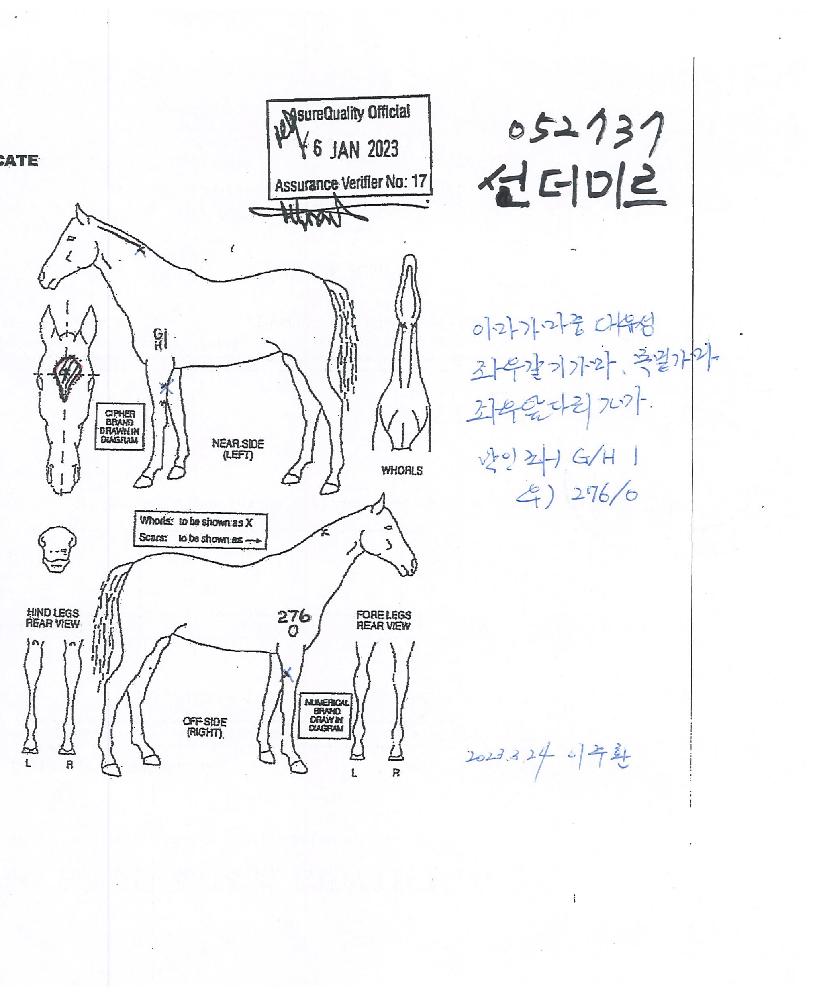 CATE
AssureQuality Official
6 JAN 2023
Assurance Verifier No: 17
052737
선더미르
GH
HI
CIPHER
BRAND
DRAWN IN
DIAGRAM
NEAR SIDE
(LEFT)
WHORLS
이마가마중 대유성
좌우갈기가마, 목결가마
좌우앞다리 가마.
낙인 좌) G/H I
우) 276/0
Whorls: to be shown as X
Scars: to be shown as →
HIND LEGS
REAR VIEW
276
0
FORE LEGS
REAR VIEW
OFF SIDE
(RIGHT)
NUMERICAL
BRAND
DRAW IN
DIAGRAM
L R
L R
2023.3.24 이주환